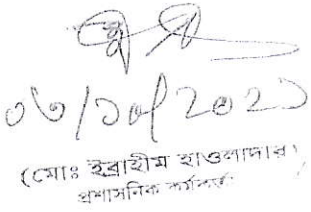 ০৬/১০/২০২১
(মোঃ ইব্রাহীম হাওলাদার)
প্রশাসনিক কর্মকর্তা